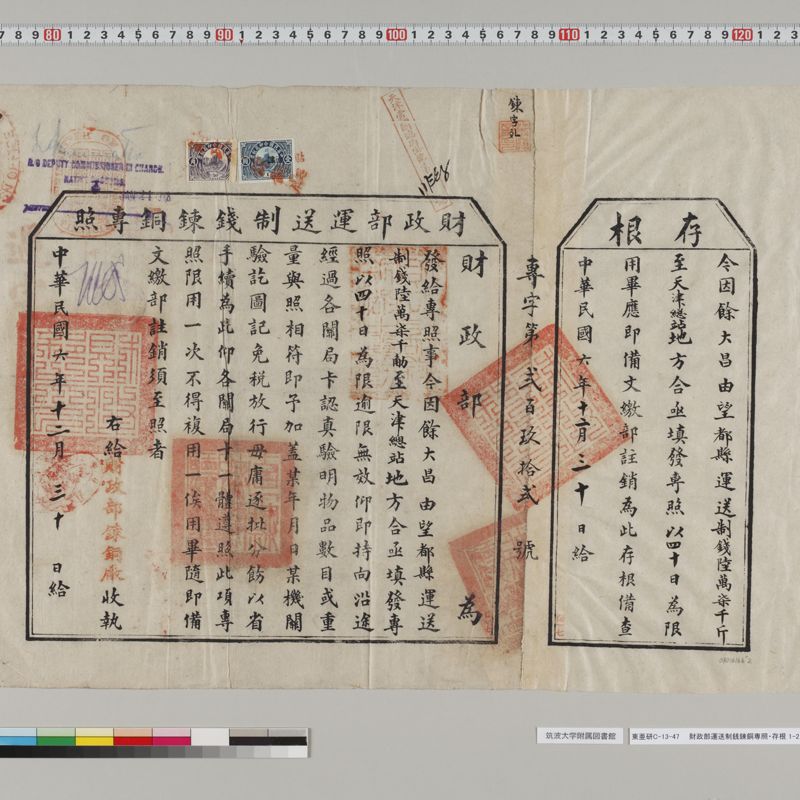 錬字
存根
令因餘大昌由望都縣運送制錢陸萬柒千斤
至天津總站地方合亟填發專照以四十日為限
用畢應即備文繳部註銷為此存根備查
中華民國六年十二月三十日給
專字第貳百玖拾貳號
財政部運送制錢錬銅專照
財政部為
發給專照事今因餘大昌由望都縣運送
制錢陸萬柒千觔至天津總站地方合亟填發專
照以四十日為限逾限無效仰即持向沿途
經過各關局卡認真驗明物品數目或重
量與照相符即予加蓋某年月日某機關
驗訖圖記免稅放行毋庸逐批分飭以省
手續為此仰各關局卡一體遵照此項專
照限用一次不得複用一俟用畢隨即備
文繳部註銷須至照者
右給財政部錬銅廠收執
中華民國六年十二月三十日給
DEPUTY COMMISSIONER IN CHARGE.
筑波大学附属図書館
東亜研C-13-47 財政部運送制銭錬銅專照・存根 1-2